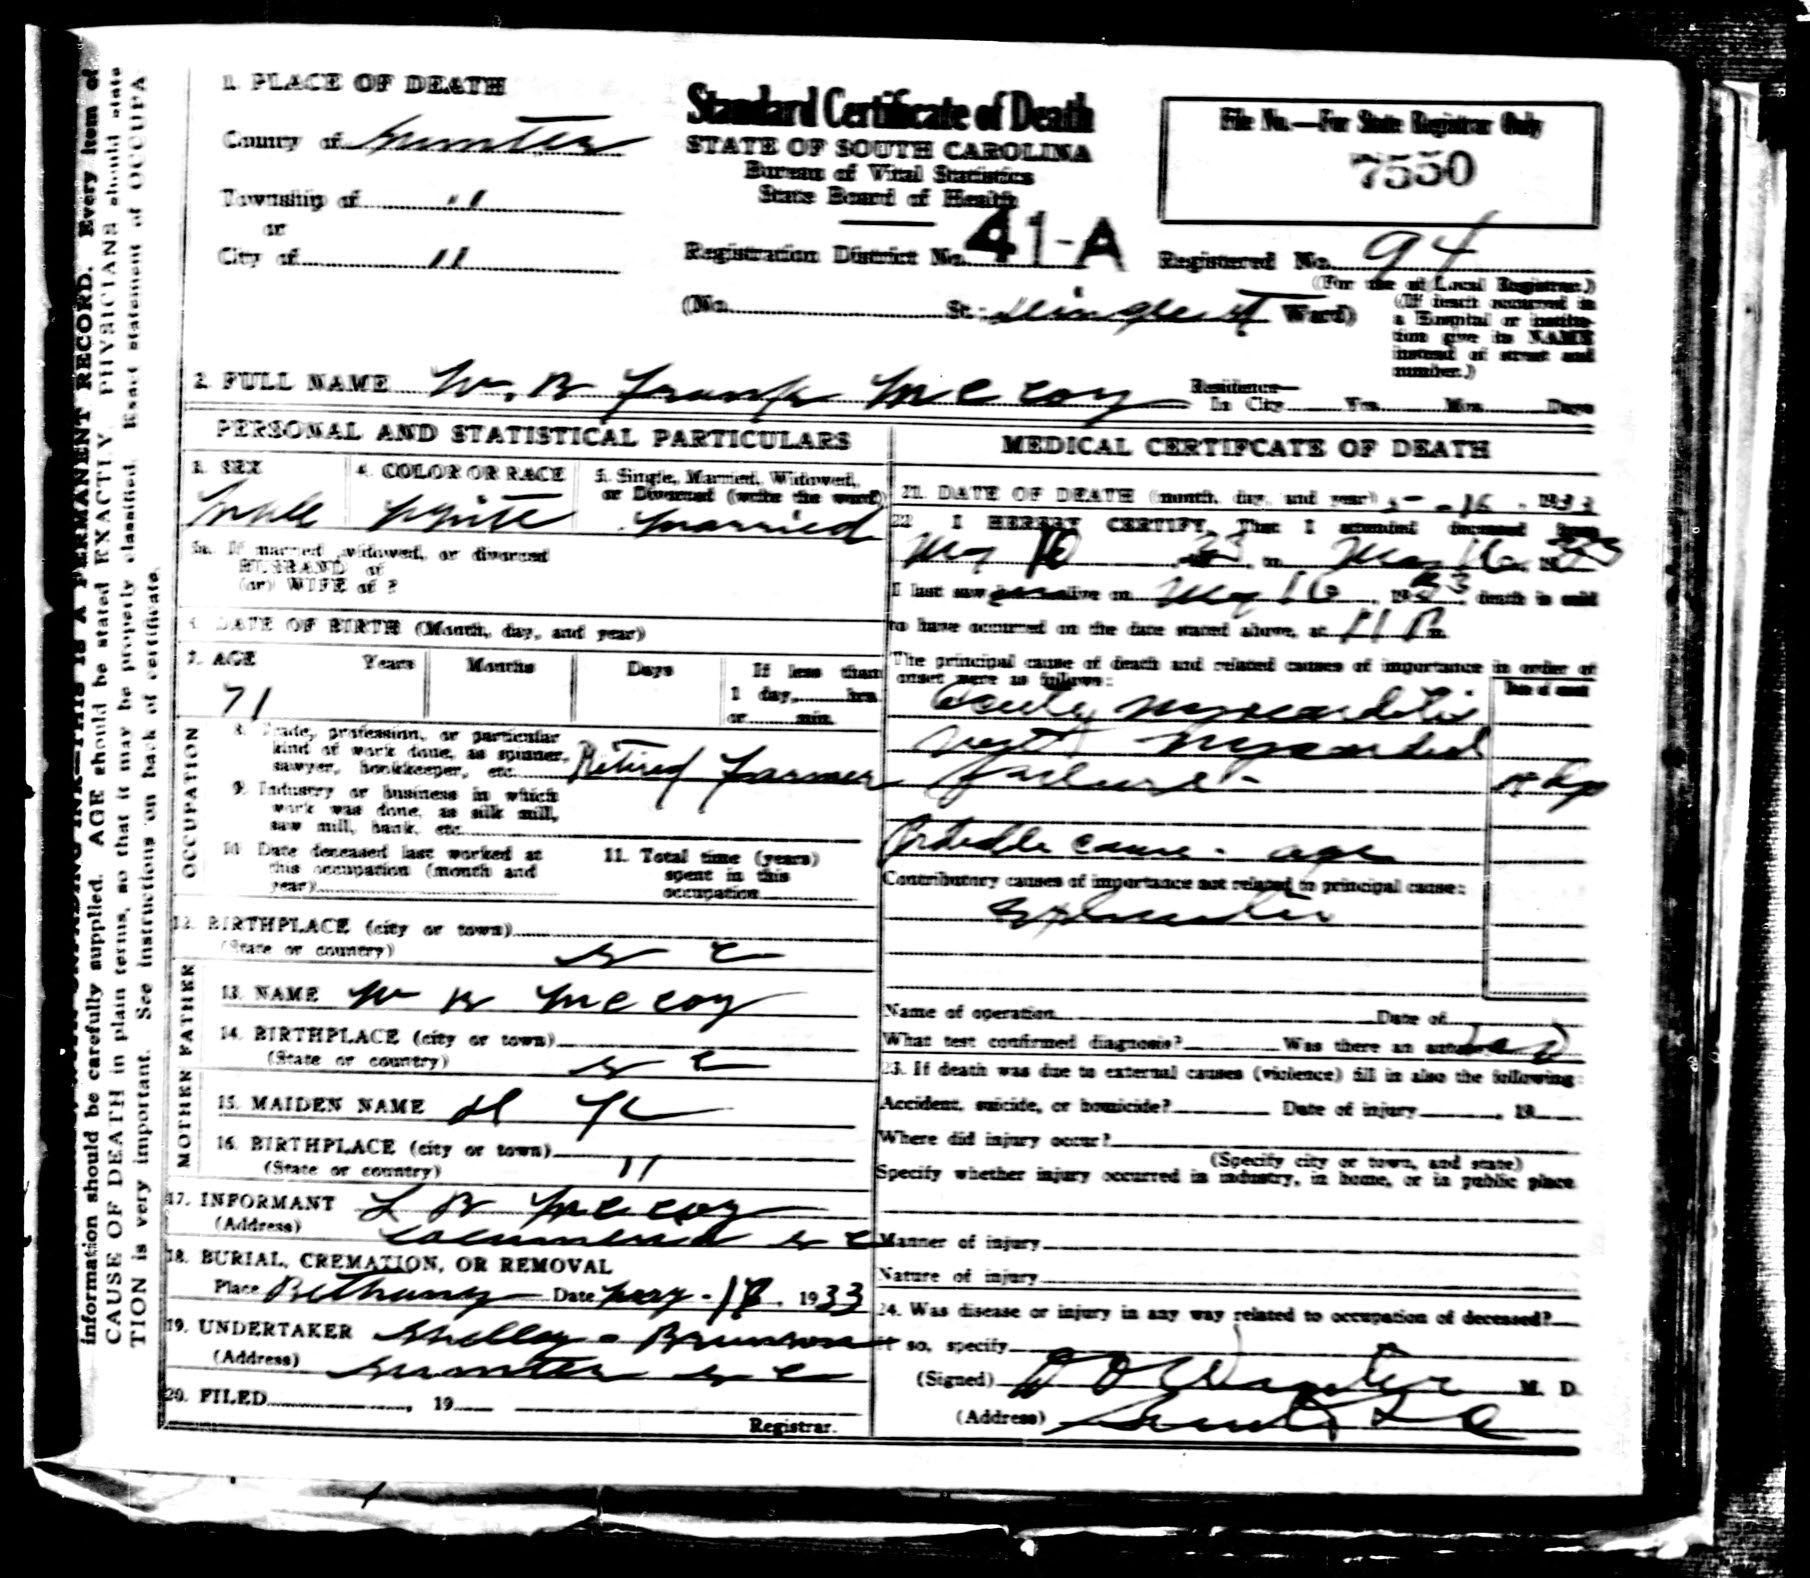 1. PLACE OF DEATH
County of Sumter
Township of " "
or
City of "
Standard Certificate of Death
STATE OF SOUTH CAROLINA
Bureau of Vital Statistics
State Board of Health
Registration District No. 41-A
File No.—For State Registrar Only
7550
Registered No. 94
(For use of Local Registrar.)
(No. St.; Ward)
(If death occurred in
a Hospital or institu-
tion give its NAME
instead of street and
number.)
2. FULL NAME W. B Frank McCoy
Residence—
In City Yrs. Mos. Days
PERSONAL AND STATISTICAL PARTICULARS
3. SEX
Male
4. COLOR OR RACE
White
5. Single, Married, Widowed,
or Divorced (write the word)
Married
5a. If married, widowed, or divorced
HUSBAND of
(or) WIFE of ?
6. DATE OF BIRTH (Month, day, and year)
7. AGE Years Months Days If less than
71
1 day, hrs.
or min.
OCCUPATION
8. Trade, profession, or particular
kind of work done, as spinner,
sawyer, bookkeeper, etc. Retired Farmer
9. Industry or business in which
work was done, as silk mill,
saw mill, bank, etc.
10. Date deceased last worked at
this occupation (month and
year)
11. Total time (years)
spent in this
occupation
12. BIRTHPLACE (city or town)
(State or country) S C
FATHER
13. NAME W B McCoy
14. BIRTHPLACE (city or town)
(State or country) S C
MOTHER
15. MAIDEN NAME
16. BIRTHPLACE (city or town)
(State or country) "
17. INFORMANT L B McCoy
(Address) Columbia S C
18. BURIAL, CREMATION, OR REMOVAL
Place Bethany Date May-18, 1933
19. UNDERTAKER Shelley - Brunson
(Address) Sumter S C
20. FILED , 19
Registrar.
MEDICAL CERTIFCATE OF DEATH
21. DATE OF DEATH (month, day, and year) 5-16, 1933
22 I HEREBY CERTIFY, That I attended deceased from
May 33, to May 16, 1933
I last saw alive on May 16, 1933, death is said
to have occurred on the date stated above, at 11 P m.
The principal cause of death and related causes of importance in order of
onset were as follows:
Date of onset
Acute myocarditis
myocardial
failure -
Probable cause - age
Contributory causes of importance not related to principal cause:
Name of operation Date of
What test confirmed diagnosis? Was there an autopsy?
23. If death was due to external causes (violence) fill in also the following:
Accident, suicide, or homicide? Date of injury , 19
Where did injury occur?
(Specify city or town, and state)
Specify whether injury occurred in industry, in home, or in public place.
Manner of injury
Nature of injury
24. Was disease or injury in any way related to occupation of deceased?
If so, specify
(Signed) M. D.
(Address) Sumter S C
information should be carefully supplied. AGE should be stated EXACTLY. PHYSICIANS should state
CAUSE OF DEATH in plain terms, so that it may be properly classified. Exact statement of OCCUPA-
TION is very important. See instructions on back of certificate.
THIS IS A PERMANENT RECORD. Every item of